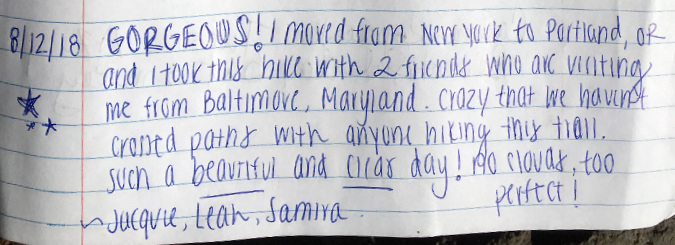 8/12/18 GORGEOUS! I moved from New York to Portland, OR
and I took this hike with 2 friends who are visiting
me from Baltimore, Maryland. Crazy that we haven't
crossed paths with anyone hiking this trail.
Such a beautiful and clear day! No clouds, too
perfect!
~ Jacquie, Leah, Samira